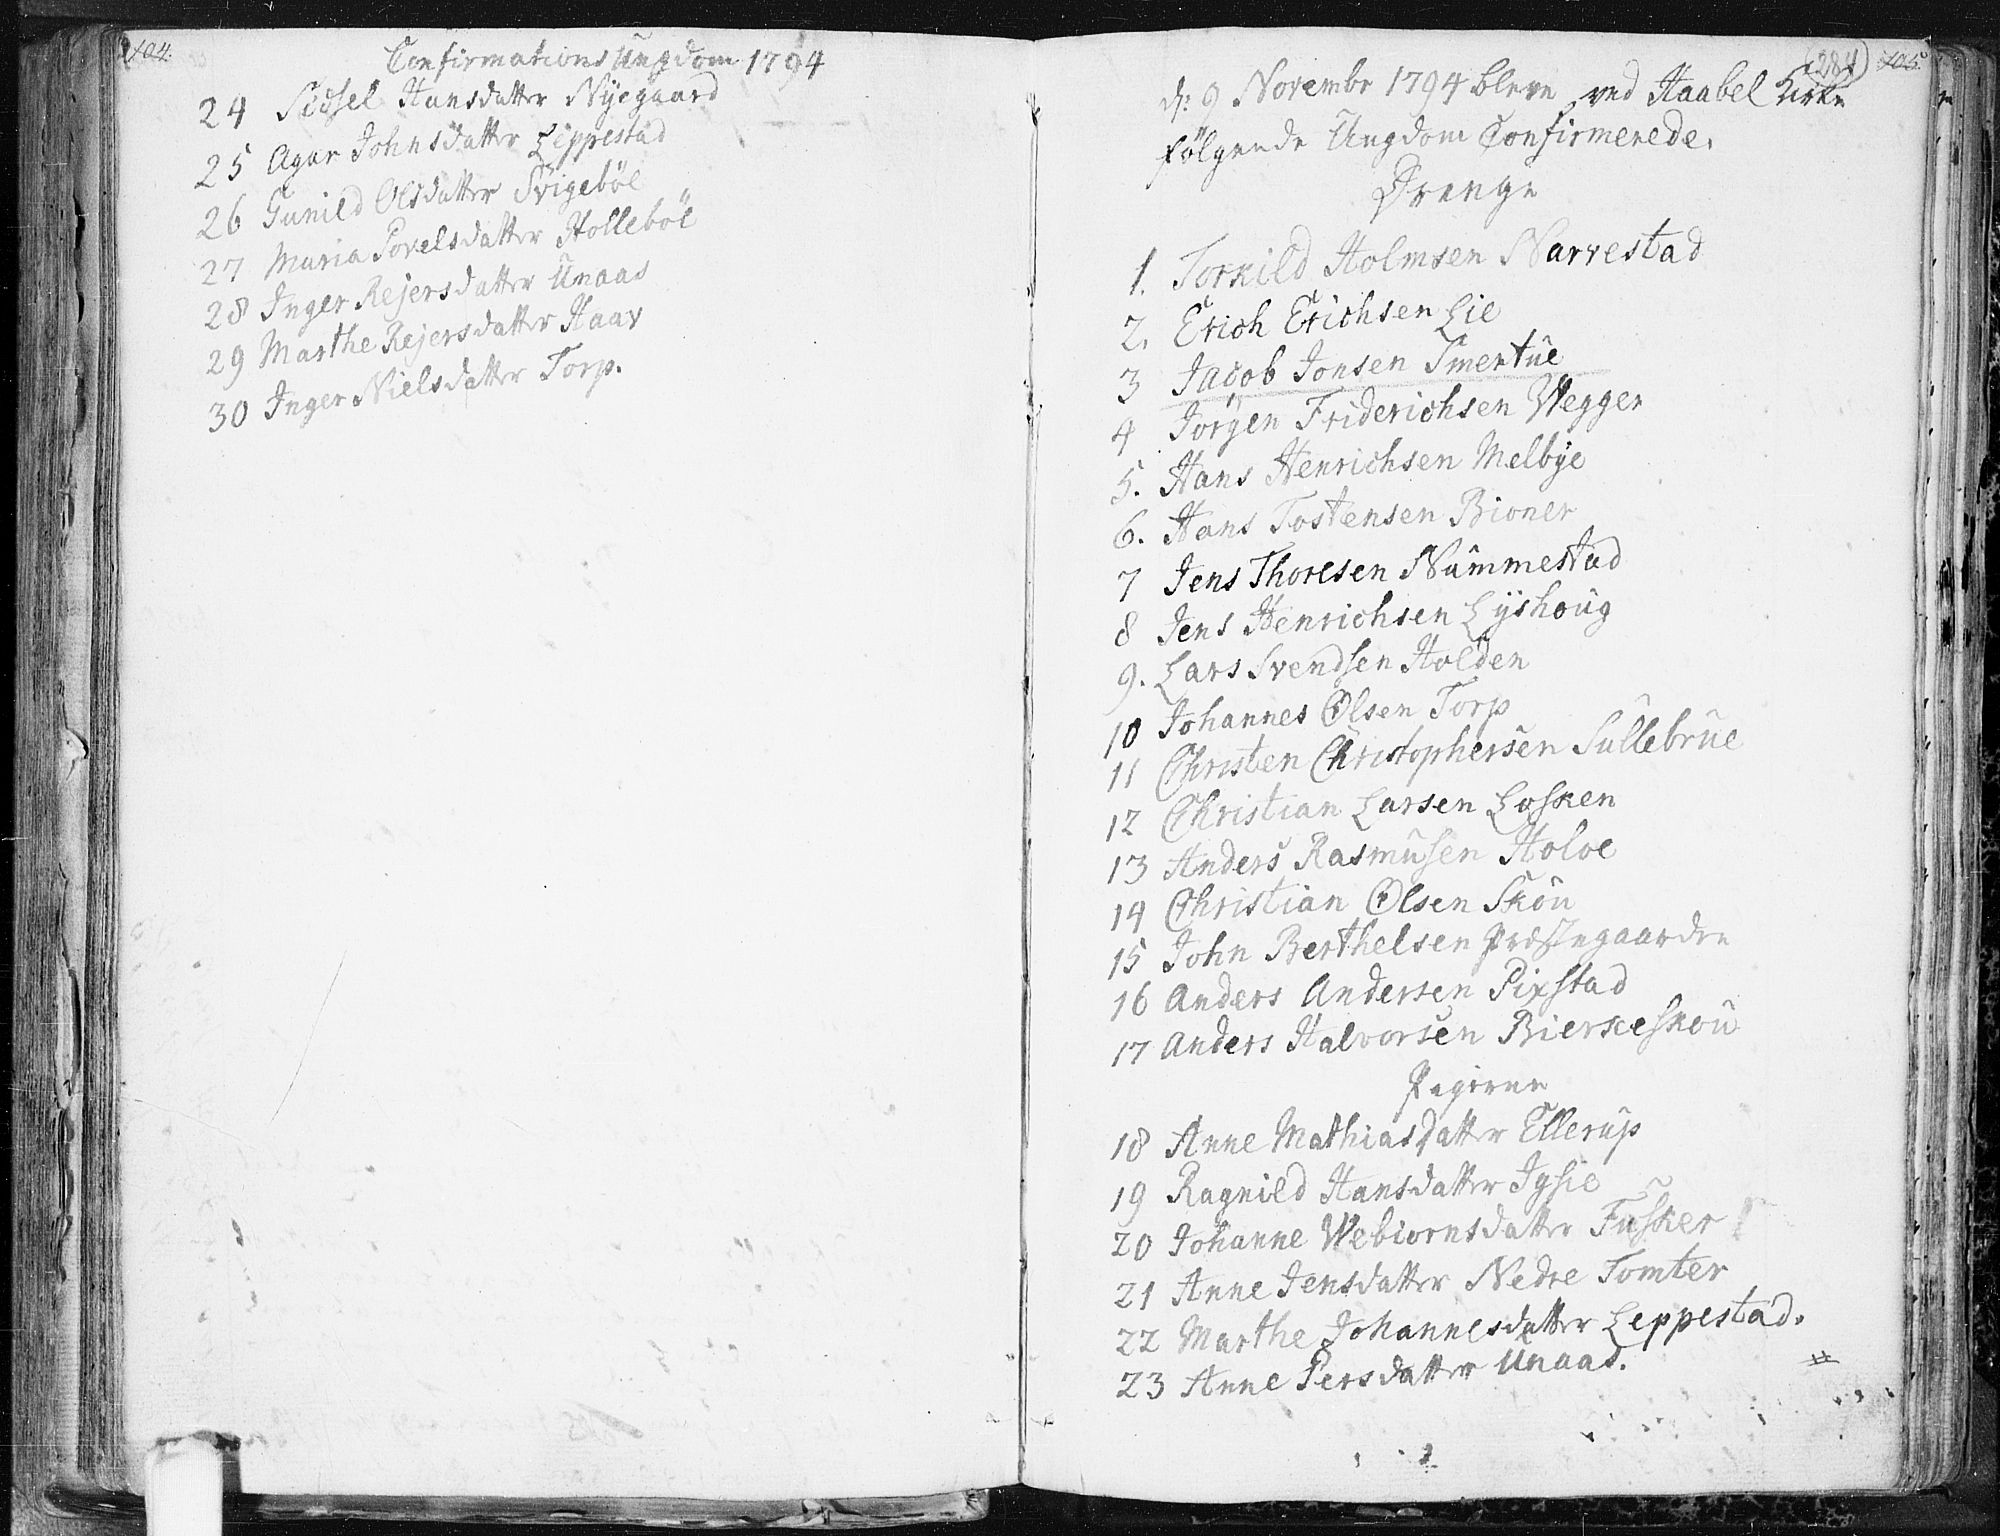 104.
Confirmations Ungdom 1794
24 Sidsel Hansdatter Nyegaard
25 Agar Johnsdatter Leppestad
26 Gunild Olsdatter Svigebøl
27 Maria Povelsdatter Hollebøl
28 Inger Rejersdatter Unaas
29 Marthe Rejersdatter Haav
30 Inger Nielsdatter Torp.
(284) 105
d: 9 Novembr 1794 bleve ved Haabel Kirke
følgende Ungdom Confirmerede.
Drenge
1. Torkild Holmsen Narvestad
2. Erich Erichsen Lie
3 Jacob Jonsen Smertue
4 Jørgen Friderichsen Wegger
5. Hans Henrichsen Melbye
6. Hans Tostensen Bioner
7 Jens Thoresen Nummestad
8 Jens Henrichsen Lyshoug
9. Lars Svendsen Holden
10 Johannes Olsen Torp
11 Christen Christophersen Sullebrue
12 Christian Larsen Losken
13 Anders Rasmusen Holoe
14 Christian Olsen Skou
15 John Berthelsen Præstegaarden
16 Anders Andersen Pixstad
17 Anders Halvorsen Bierkeskou
Pigerne
18 Anne Mathiasdatter Ellerup
19 Ragnild Hansdatter Igsie
20 Johanne Webiornsdatter Fusker
21 Anne Jensdatter Nedre Tomter
22 Marthe Johannesdatter Leppestad.
23 Anne Persdatter Unaas.